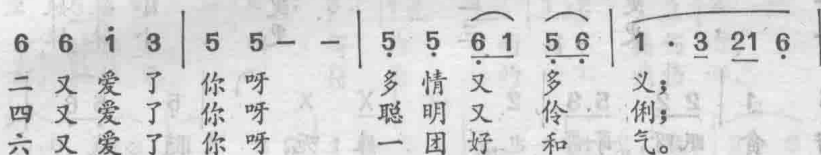 6 6 i 3 | 5 5 — — | 5 5 6 1 5 6 | 1 · 3 21 6
二 又 爱 了 你 呀 多 情 又 多 义；
四 又 爱 了 你 呀 聪 明 又 伶 俐；
六 又 爱 了 你 呀 一 团 好 和 气。